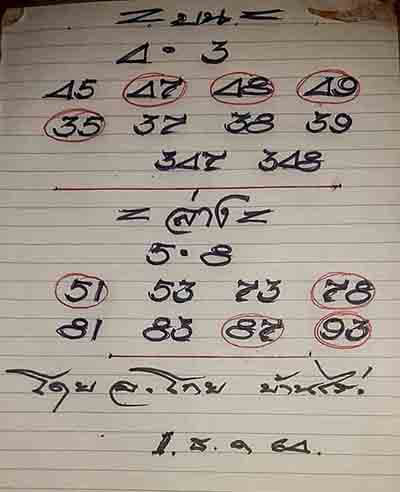 = บน =
4 · 3
45 47 48 49
35 37 38 39
347 348
= ล่าง =
5 · 8
51 53 73 78
81 83 87 93
โดย อ. โทย บ้านไร่
1. ธ. ๑ 64.